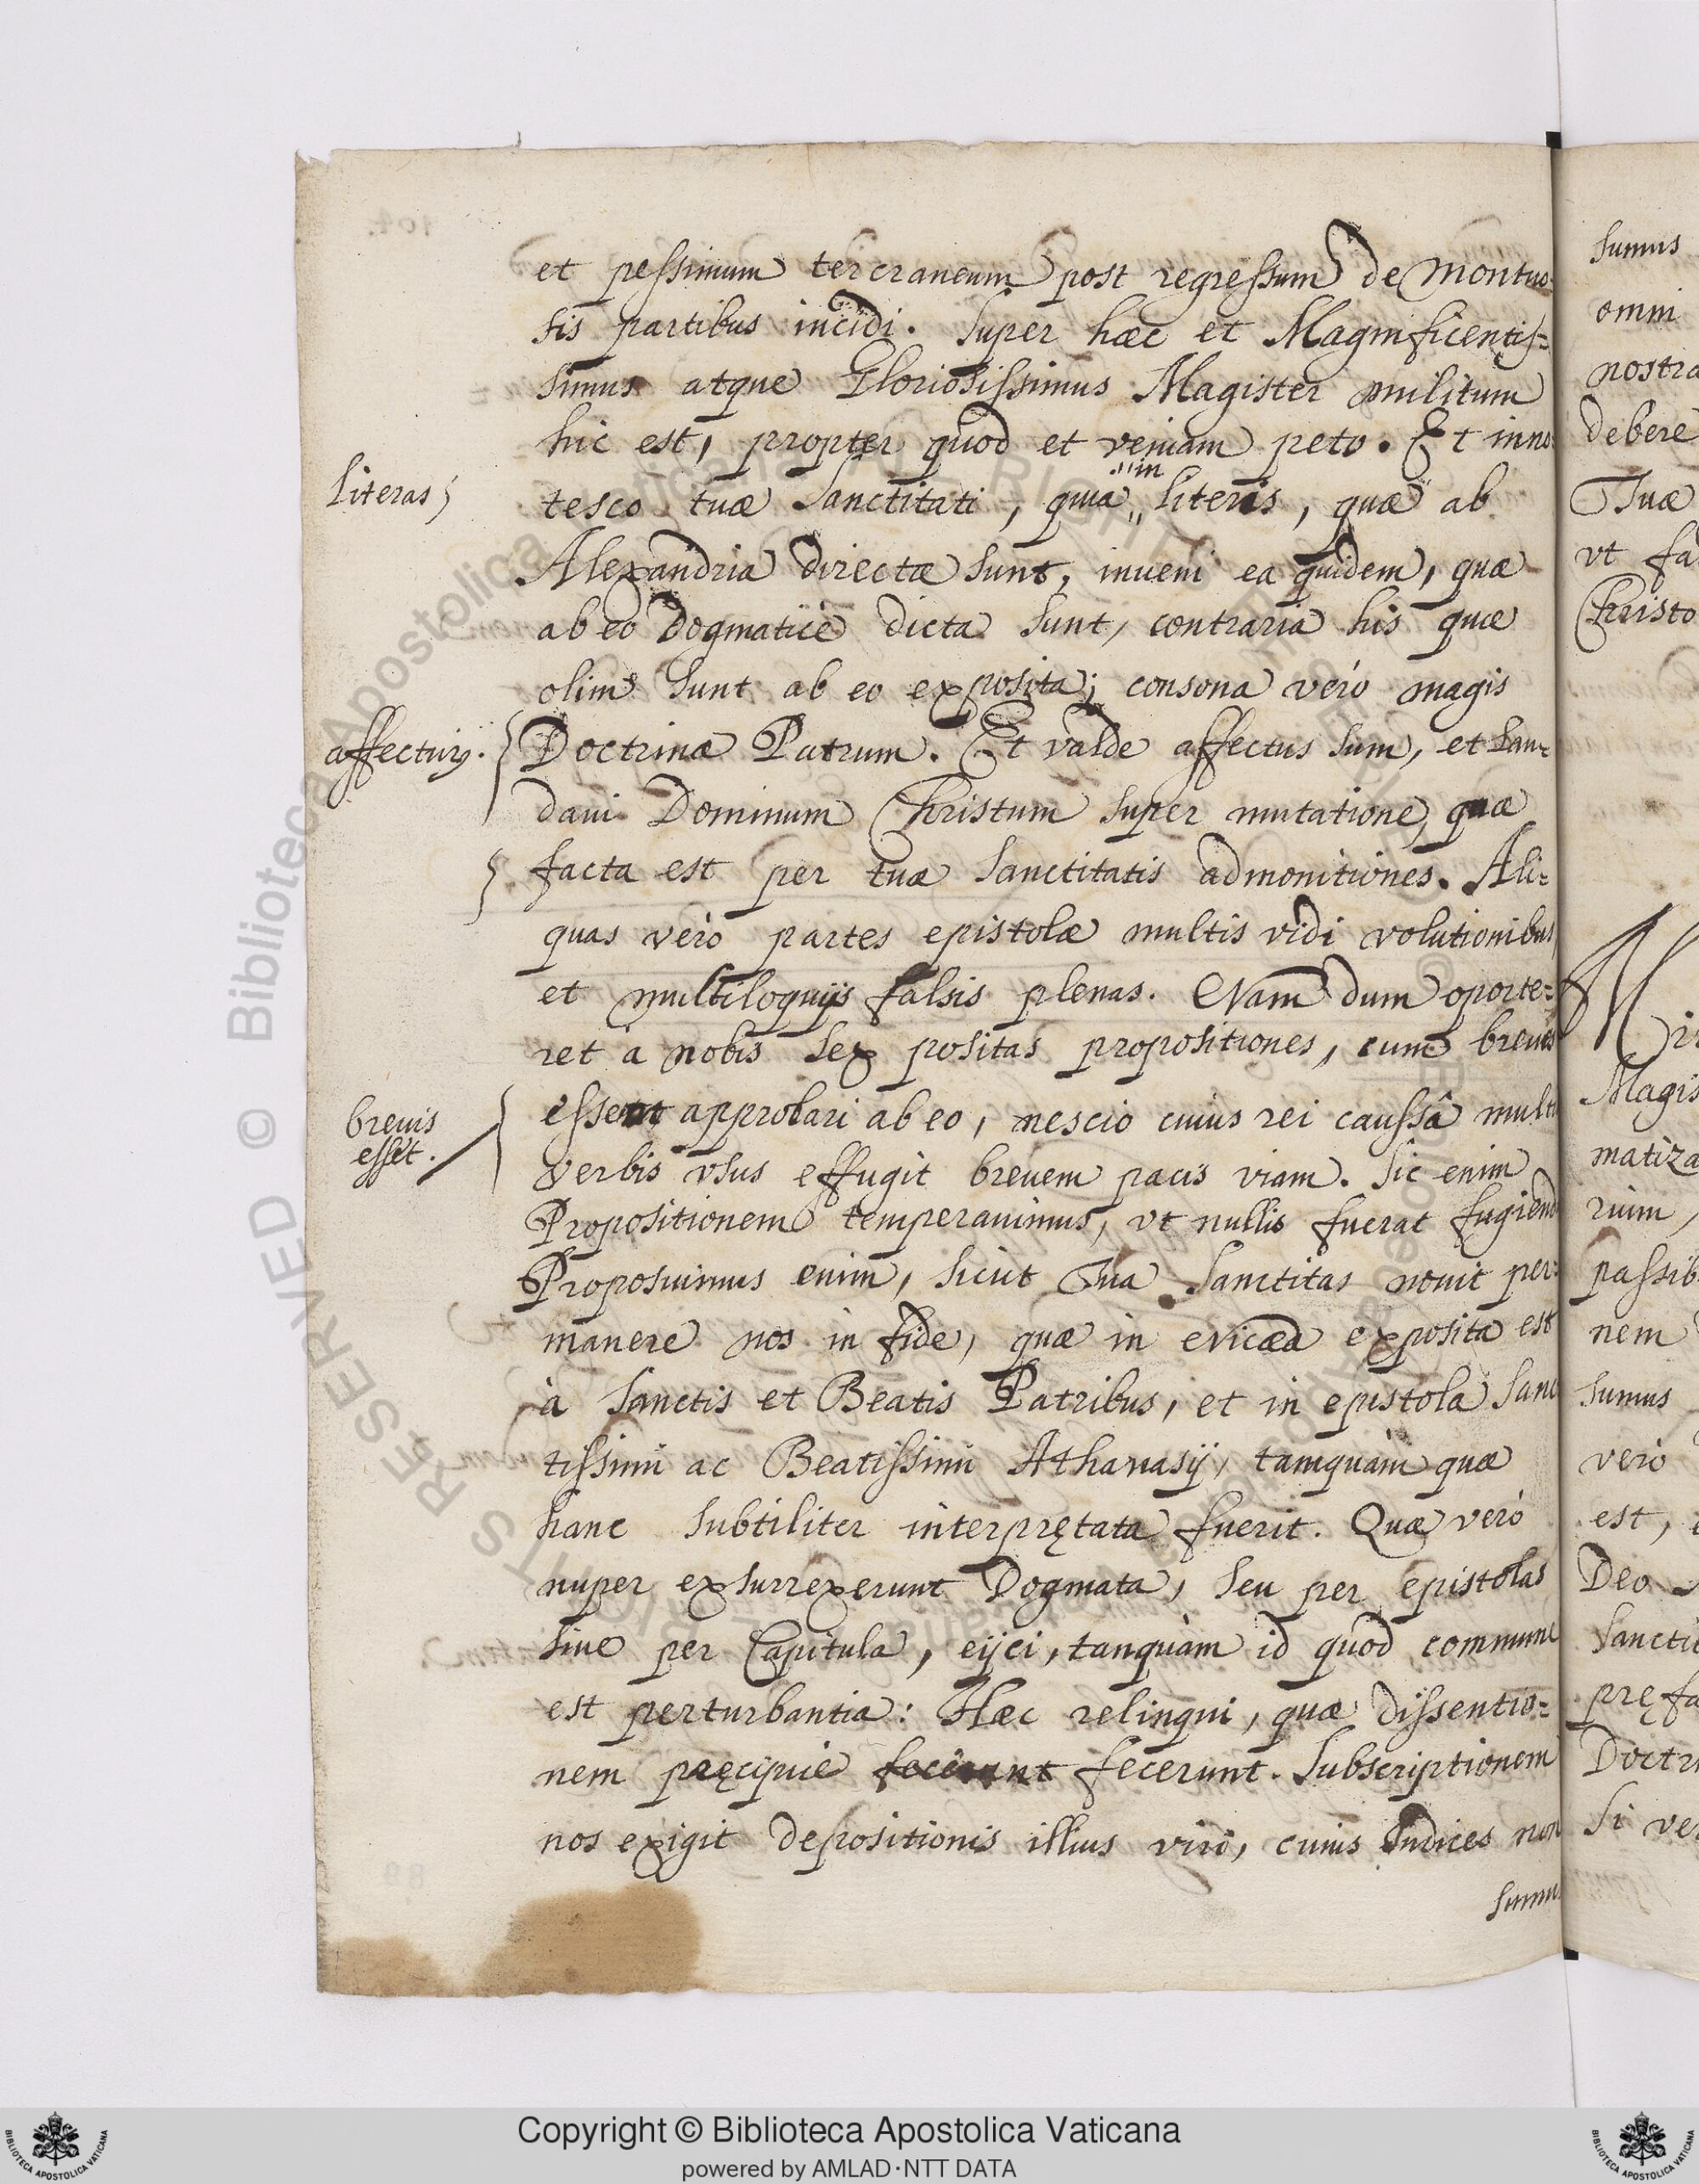 et pessimum tercraneum post regressum de montuo-
sis partibus incidi. Super hæc et Magnificentis=
simus atque Gloriosissimus Magister militum
hic est, propter quod et veniam peto. Et inno
literas
tesco tuæ Sanctitati, quia in literis, quæ ab
Alexandria directæ sunt, inueni ea quidem, quæ
ab eo Dogmaticè dicta sunt, contraria his quæ
olim sunt ab eo exposita; consona verò magis
affecturus.
Doctrinæ Patrum. Et valde affectus sum, et lau=
daui Dominum Christum super mutatione, quæ
facta est per tuæ Sanctitatis admonitiones. Ali=
quas verò partes epistolæ multis vidi volutionibus,
et multiloquijs falsis plenas. Nam dum oporte=
ret à nobis sex positas propositiones, cum breues
breuis
esset.
essent approbari ab eo, nescio cuius rei caussâ multi
verbis vsus effugit breuem pacis viam. Sic enim
Propositionem temperauimus, vt nullis fuerat fugiend
Proposuimus enim, sicut Tua Sanctitas nouit per=
manere nos in fide, quæ in Nicæa exposita est
à Sanctis et Beatis Patribus, et in epistola Sanc
tissimi ac Beatissimi Athanasij, tamquàm quæ
hanc subtiliter interprętata fuerit. Quæ verò
nuper exsurrexerunt Dogmata, seu per epistolas
siue per Capitula, eijci, tanquàm id quod commune
est perturbantia: Hæc relinqui, quæ dissentio=
nem pręcipuè fecerunt fecerunt. Subscriptionem
nos exigit depositionis illius viri, cuius Iudices non
sumus
sumus
omni
nostra
debere
Tuæ
vt fa
Christo
Magis
matiza
rium,
passib
nem
sumus
verò
est,
Deo
Sancti
pręfa
Doctri
Si ver
© Biblioteca Apostolica Vaticana
Copyright © Biblioteca Apostolica Vaticana
powered by AMLAD·NTT DATA